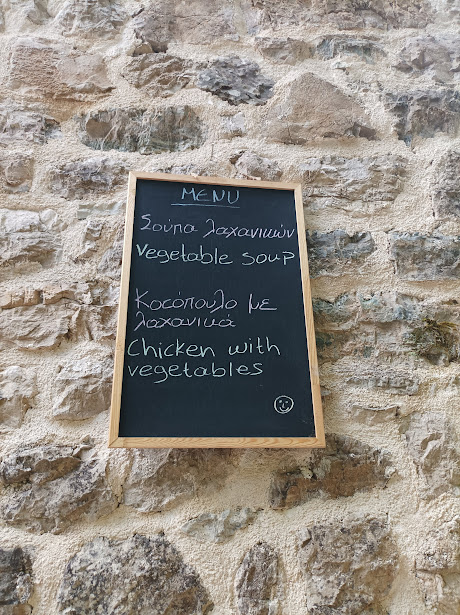 MENU
Σούπα λαχανικών
Vegetable soup
Κοτόπουλο με
λαχανικά
Chicken with
vegetables